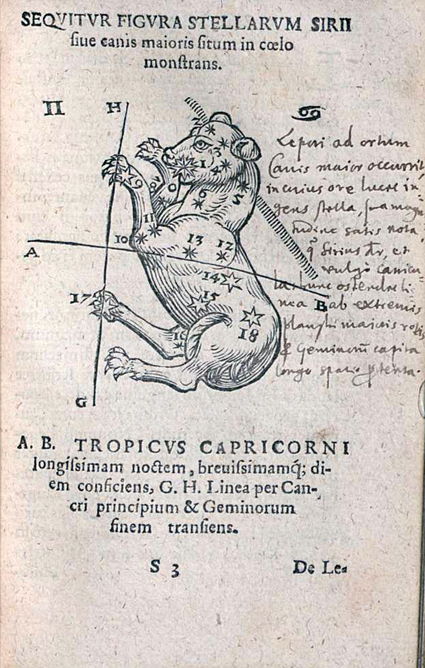 SEQVITVR FIGVRA STELLARVM SIRII
siue canis maioris situm in cœlo
monstrans.
II H ♋
Lepori ad ortum
Canis maior occurrit
in cuius ore lucet in-
gens stella,
satis nota,
Sirius et
vulgo Canicu-
la: hunc ostendet li-
nea ab extremis
plaustri maioris
& Geminorum capita
longo spatio
1
5
11
10
A
13 12
14
B
17
15
18
16
G
A. B. TROPICVS CAPRICORNI
longissimam noctem, breuissimamq́; di-
em conficiens, G. H. Linea per Can-
cri principium & Geminorum
finem transiens.
S 3 De Le-